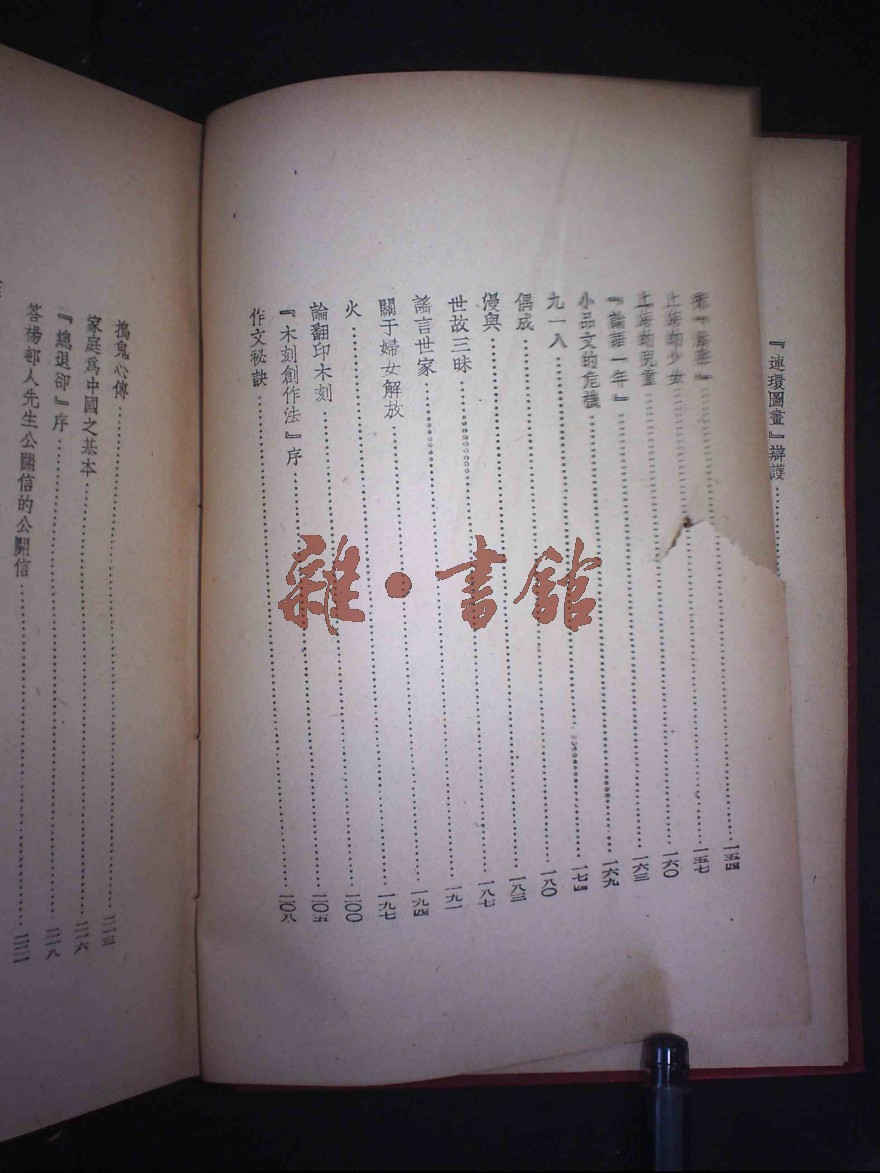 『連環圖畫』辯護
一五四
上海的少女 一五七
上海的兒童 一六〇
『論語一年』 一六三
小品文的危機 一六九
九一八 一七四
偶成 一八〇
漫與 一八三
世故三昧 一八七
謠言世家 一九一
關于婦女解放 一九四
火 一九七
論翻印木刻 二〇〇
『木刻創作法』序 二〇五
作文秘訣 二〇八
搗鬼心傳 二一三
家庭爲中國之基本 二一六
『總退卻』序 二一八
答楊邨人先生公開信的公開信 二二一
雜·書館